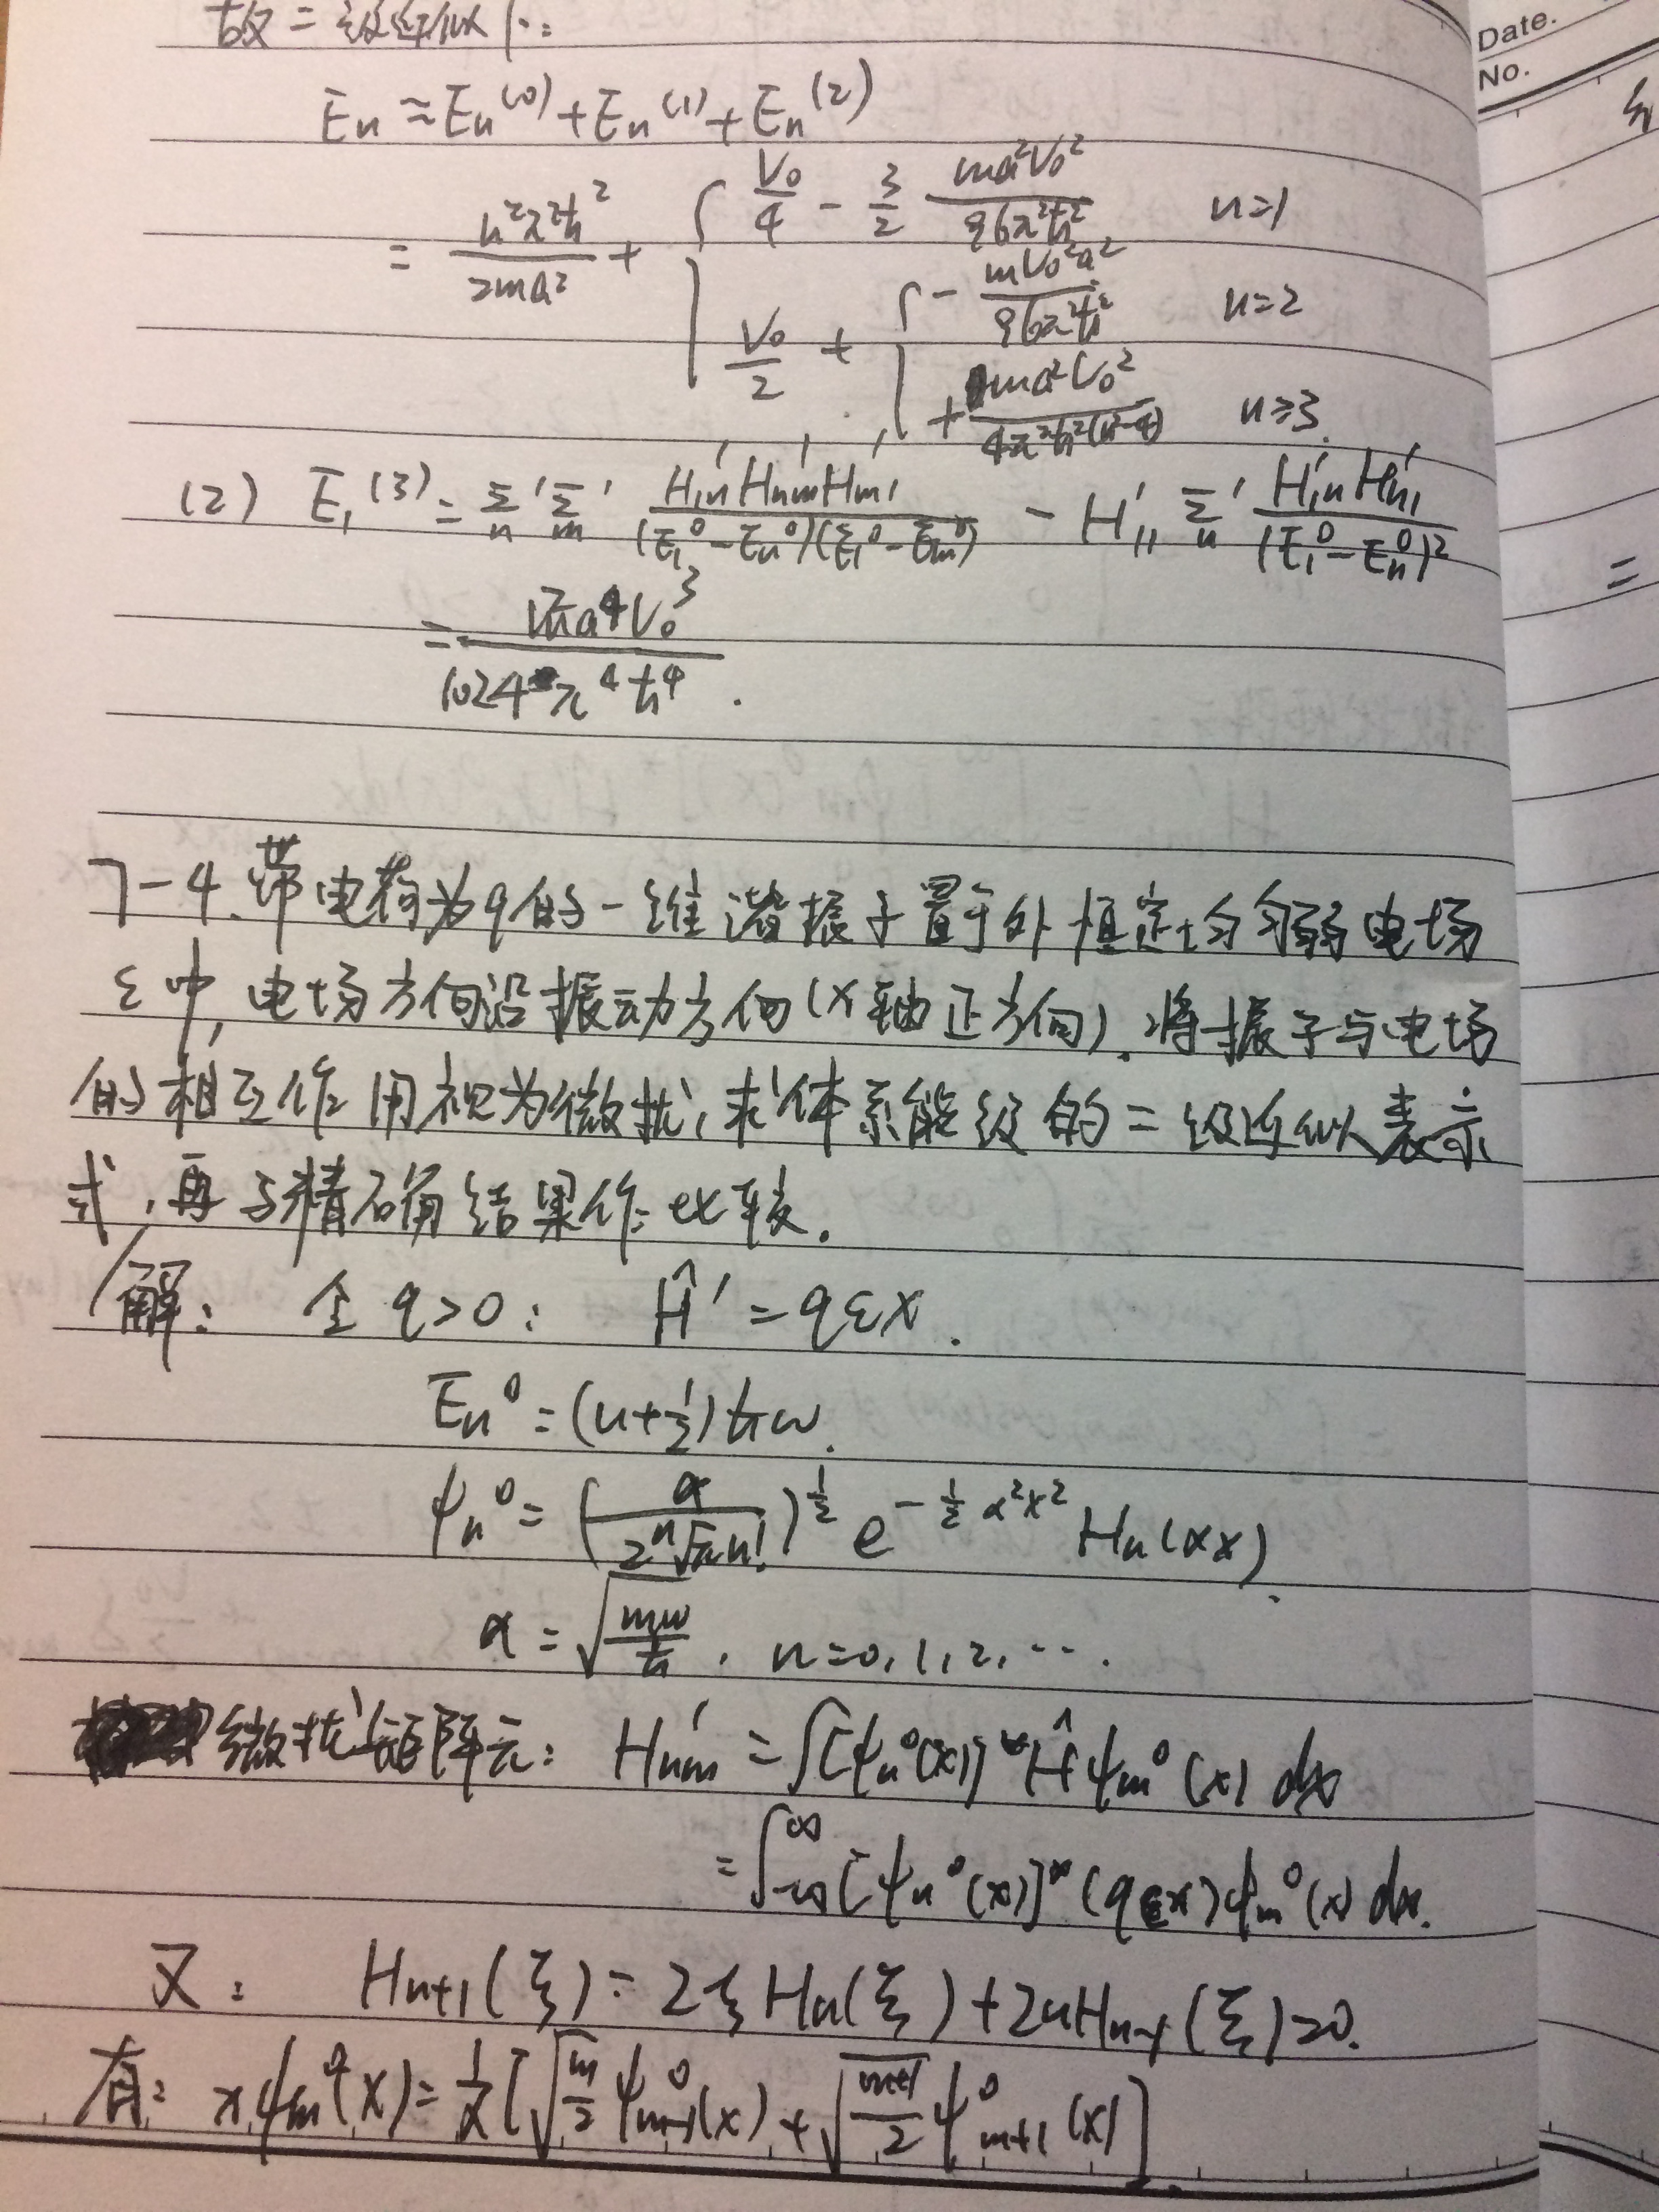 故二级近似下:
Eₙ ≈ Eₙ⁽⁰⁾ + Eₙ⁽¹⁾ + Eₙ⁽²⁾
= n²π²ħ²/2ma² + { V₀/4 - 3/2 ma²V₀²/96π²ħ² n=1
V₀/2 + { - mV₀²a²/96π²ħ² n=2
+ ma²V₀²/4π²ħ²(n²-4) n≥3.
(2) E₁⁽³⁾ = Σₙ' Σₘ' H₁ₙ'Hₙₘ'Hₘ₁'/(E₁⁰-Eₙ⁰)(E₁⁰-Eₘ⁰) - H₁₁' Σₙ' H₁ₙ'Hₙ₁'/(E₁⁰-Eₙ⁰)²
= m²a⁴V₀³/1024π⁴ħ⁴ .
7-4. 带电荷为q的一维谐振子置于外恒定均匀弱电场
ε中, 电场方向沿振动方向(x轴正方向), 将振子与电场
的相互作用视为微扰, 求体系能级的二级近似表示
式, 再与精确结果作比较.
解: 全 q>0: Ĥ' = qεx.
Eₙ⁰ = (n+½)ħω.
ψₙ⁰ = (α/2ⁿ√π n!)^½ e^(-½α²x²) Hₙ(αx).
α = √(mω/ħ), n=0,1,2,….
微扰矩阵元: Hₙₘ' = ∫[ψₙ⁰(x)]* Ĥ' ψₘ⁰(x) dx
= ∫₋∞^∞ [ψₙ⁰(x)]* (qεx) ψₘ⁰(x) dx.
又: Hₙ₊₁(ξ) - 2ξHₙ(ξ) + 2nHₙ₋₁(ξ) = 0.
有: xψₘ⁰(x) = 1/α [√(m/2) ψ⁰ₘ₋₁(x) + √((m+1)/2) ψ⁰ₘ₊₁(x)].
Date.
No.
=